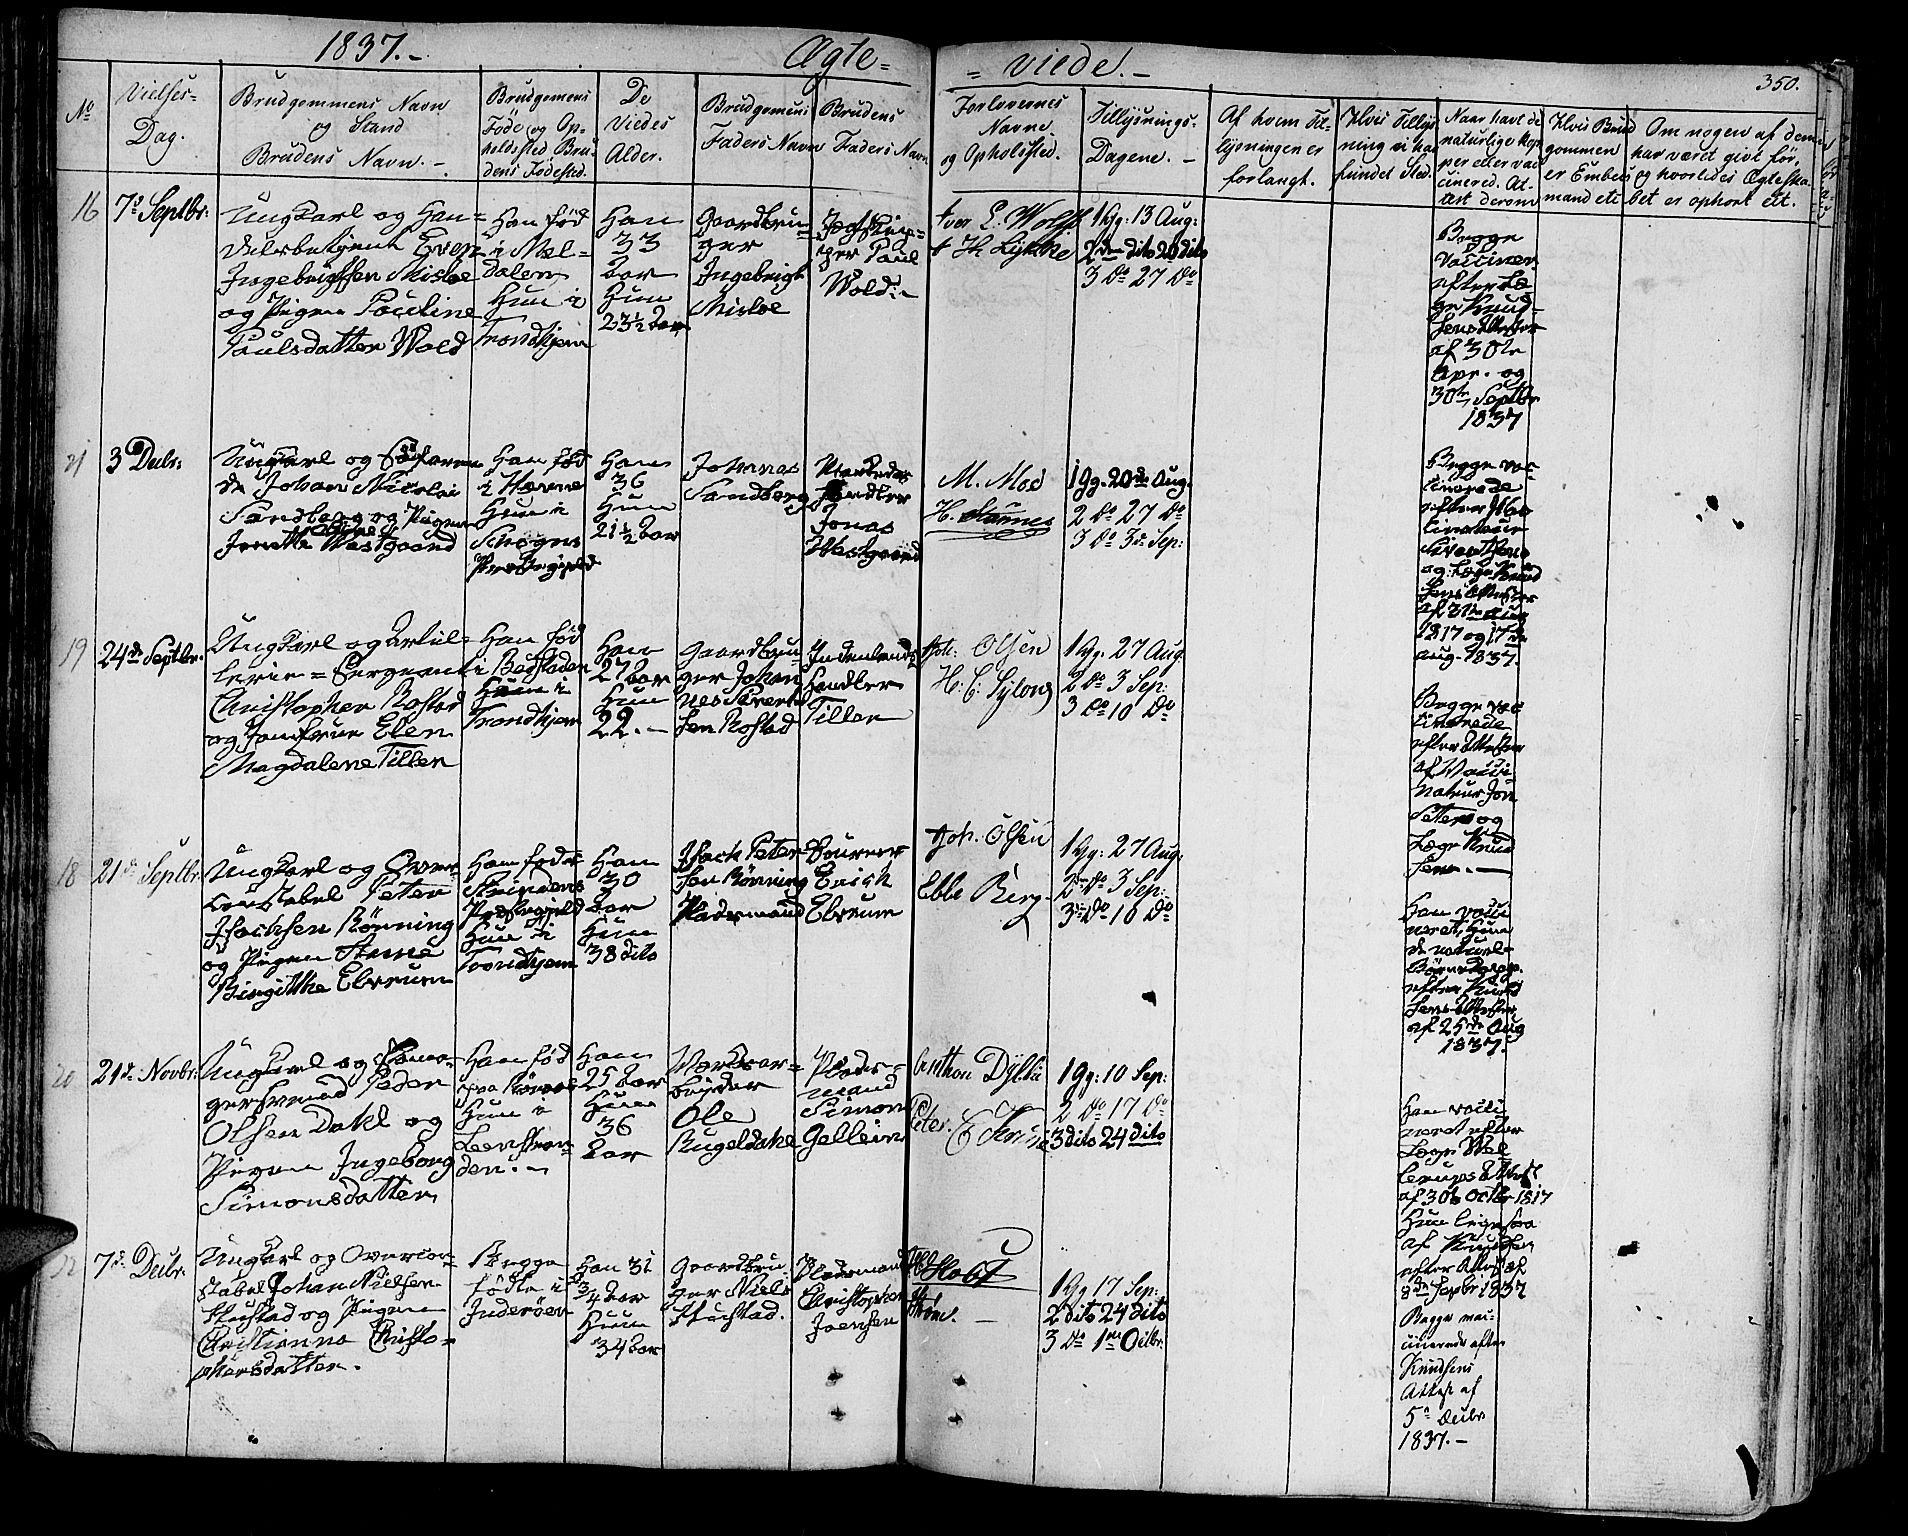 1837.-
Ægte= = viede.-
350.
No
Vielses-
Dag.
Brudgommens Navn
og Stand
Brudens Navn.-
Brudgomens
Føde og Op-
holdsted Bru-
dens Fødested.
De
Viedes
Alder.
Brudgomens
Faders Navn
Brudens
Faders Navn
Forlovernes
Navne
og Opholdssted.
Tillysnings-
Dagene.-
Af hvem Til-
lysningen er
forlangt.
Hvis Tillys
ning ei har
fundet Sted.
Naar havt de
naturlige Kop
per eller vac
cinered. At-
test derom
Hvis Brud
gommen
er Embeds
mand etc
Om nogen af dem
har været givt før,
og hvorledes Ægteska-
bet er ophørt etc.
16
7de Septbr:
Ungkarl og Han=
delsbetjent Even
Ingebrigtsen Misloe
og Pigen Pauline
Paulsdatter Wold
Han fød
i Mel=
dalen
Hun i
Trondhjem
Han
33
Aar
Hun
23 1/2 Aar
Gaardbru=
ger
Ingebrigt
Misloe
Paul
Wold.-
E. Wolff
H. Lykke
1 Gg: 13 Aug:
2den dito 20 dito
3 Do 27 Do
Begge
vaccineer.
efter Læ
ge Knud=
sens Attester
af 30te
Apr. og
30te Septbr
1837
21
3 Decbr:
Ungkarl og Søfaren
de Johan Nicolai
Sandberg og Pigen
Jonette Westgaard
Han fød
i Hevne
Hun i
Schogns
Præstegjeld
Han
36
Hun
21 1/2 Aar
Johannes
Sandberg
Handler
Jonas
Westgaard
M. Moe
H.
1 Gg. 20de Aug.
2 Do 27 Do
3 Do 3de Sep:
Begge vac-
cinerede
efter Vac
cinateur
og Læge Knud
sens Attester
af 31te Aug
1817 og 17de
Aug. 1837.
19
24de Septbr.
Ungkarl og Artil-
lerie = Sergeant
Christopher Rostad
og Jomfrue Elen
Magdalene Tiller
Han fød
i Begstaden
Hun i
Trondhjem
Han
27 Aar
Hun
22.-
Gaardbru-
ger Johan
nes Sivert
sen Rostad
Indenlands-
Handler
Tiller
Joh: Olsen
H: C: Sylow
1 Gg: 27 Aug
2 Do 3 Sep:
3 Do 10 Do
Begge vac
cinerede
efter Attester
af Vacci
nateur Jon
Peters og
Læge Knud
sen.-
18
21de Septbr
Ungkarl og Over-
constabel Peter
Isachsen Rønning
og Pigen Anne
Birgitthe Elvrum
Han født
Strindens
Præstegjeld
Hun i
Trondhjem
Han
30
Aar
Hun
38 dito
Isach Peter
sen Rønning
Pladsmand
Erich
Elvrum
Joh: Olsen
Ebbe Berg.
1 Gg: 27 Aug:
2 Do 3 Sep:
3 Do 10 Do
Han vacci
neret, Hun
de naturl=
Børnekopp.
efter Knud
sens Attester
af 25de Aug
1837.
20
21de Novbr:
Ungkarl og
Peder
Olsen Dahl og
Pigen Ingeborg
Simonsdatter
Han fød
paa Røraas
Hun i
Leenstran-
den.-
Han
25 Aar
Hun
36
Aar
Ole
Kugeldahl
Plads-
mand
Simon
Gellein
Anthon Dylla
Peter.
1 Gg: 10 Sep:
2 Do 17 Do
3 dito 24 dito
Han vacci
neret efter
Læge Wel
lerups Attest
af 30te Octbr 1817
Hun ligesaa
af Knudsen
efter Attest af
8de Septbr 1837
22
7de Decbr.
Ungkarl og Overcon-
stabel Johan Nielsen
Hustad og Pigen
Christianna Christo-
phersdatter.
Begge
fødte i
Inderøen
Han 31
3/4 Aar
Hun
34 Aar
Gaardbru
ger Niels
Hustad.
Pladsmand
Christopher
Joensen
1 Gg 17 Sep:
2 dito 24 dito
3 Do 1te Octbr.
Begge vac-
cinerede efter
Knudsens
Attest af
5te Decbr
1837.-